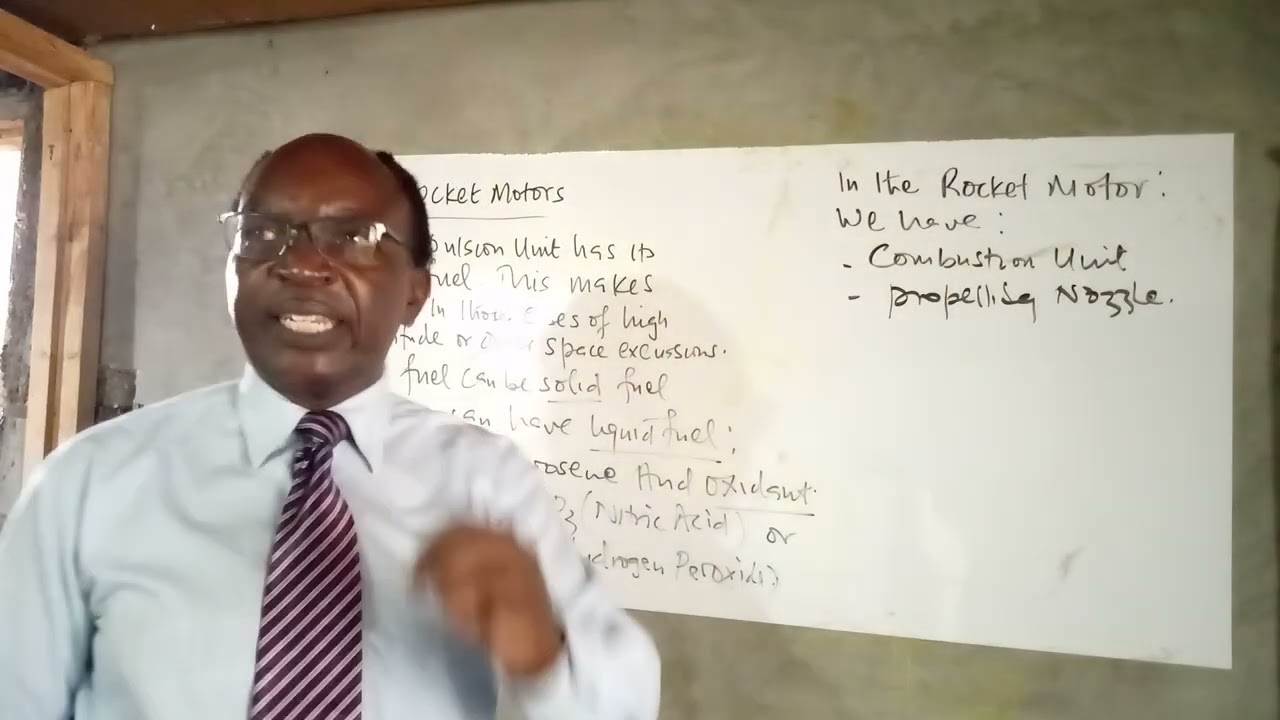 ocket Motors
pulsion Unit has its
uel. This makes
In those es of high
tude or space excussions.
fuel can be solid fuel
an have liquid fuel;
rosene And Oxidant.
(Nitric Acid) or
ydrogen Peroxide)
In the Rocket Motor:
We have:
- Combustion Unit
- propelling Nozzle.